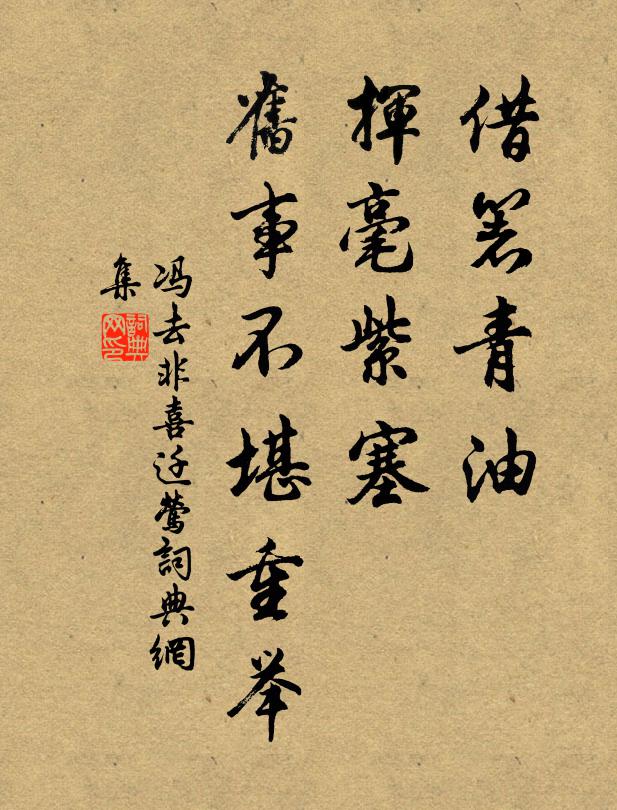 借箸青油
揮毫紫塞
舊事不堪重举
冯去非喜迁莺詞典網
集
詞典
网印